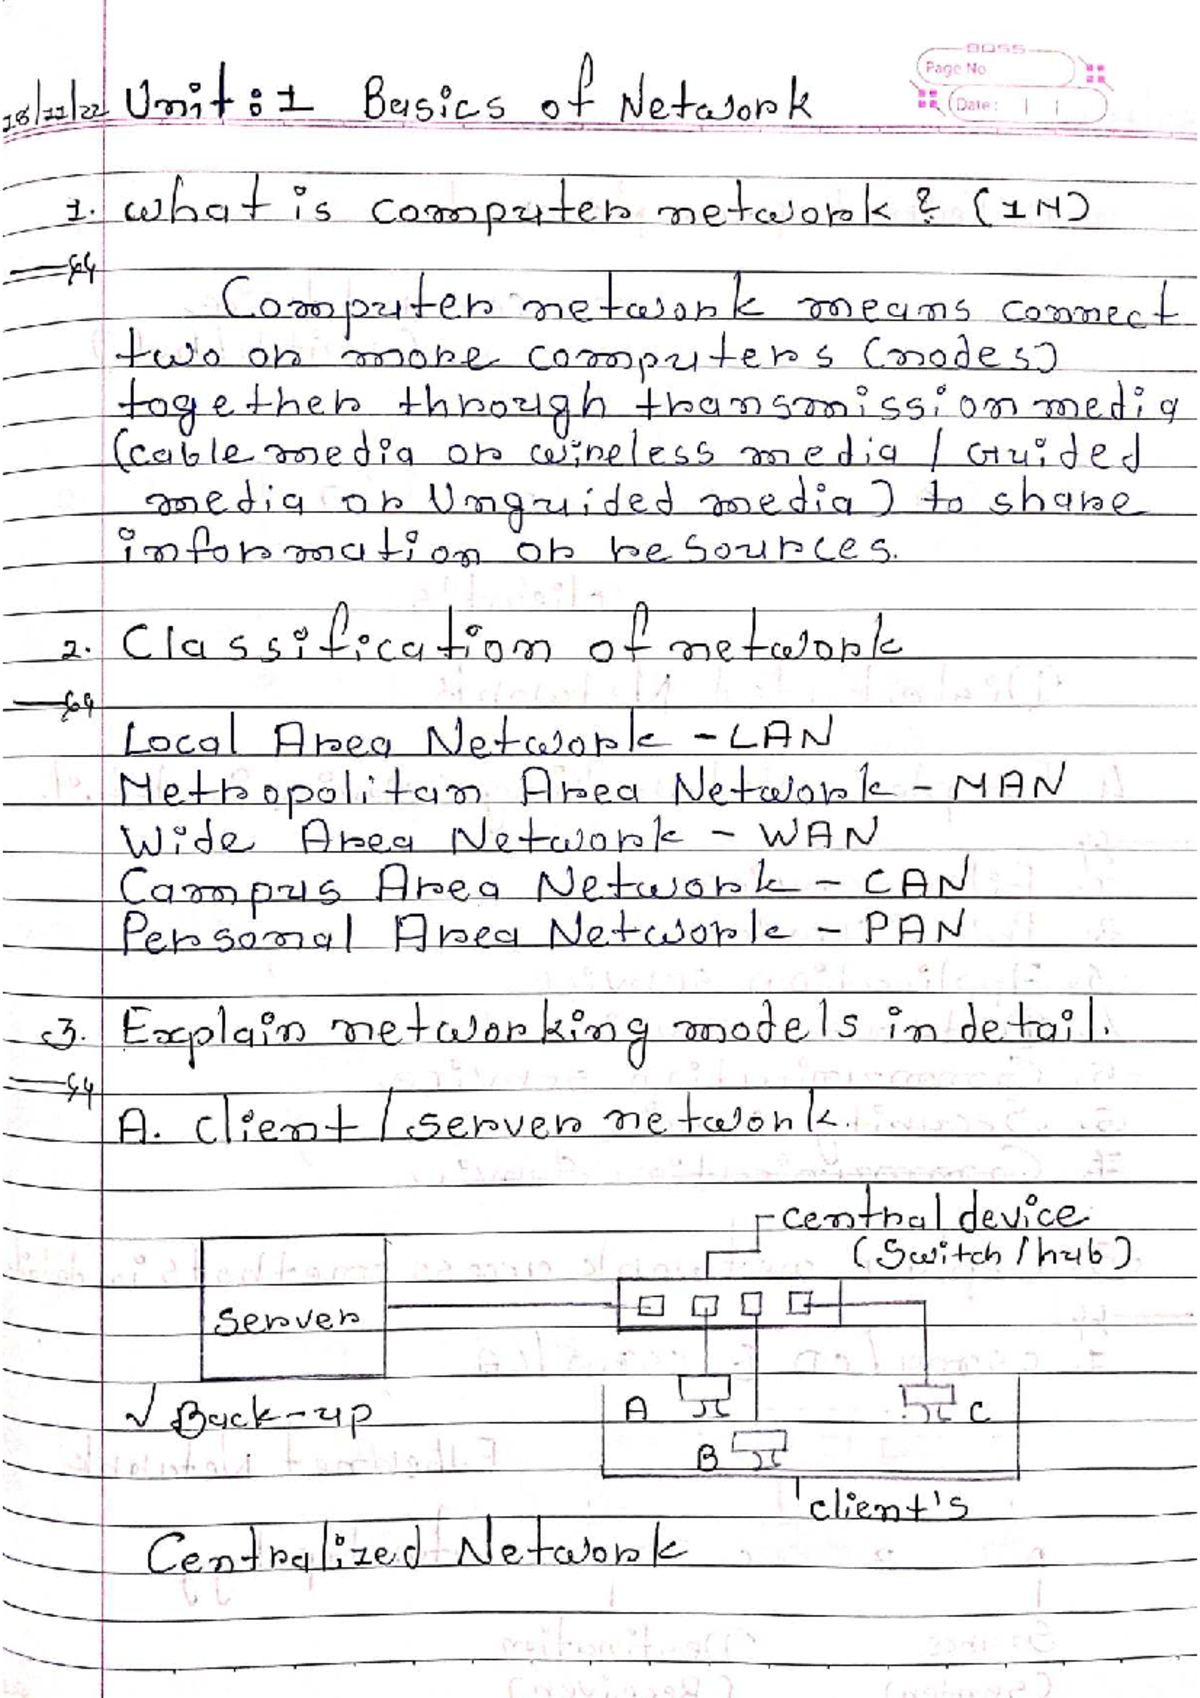 BOSS
Page No
Date:
18/11/22 Unit:1 Basics of Network
1. what is computer network? (1M)
Computer network means connect
two or more computers (nodes)
together through transmission media
(cable media or wireless media / Guided
media or Unguided media) to share
information or resources.
2. Classification of network
Local Area Network - LAN
Metropolitan Area Network - MAN
Wide Area Network - WAN
Campus Area Network - CAN
Personal Area Network - PAN
3. Explain networking models in detail.
A. client/server network.
central device
(Switch/hub)
server
√ Back-up
A
B
C
client's
Centralized Network